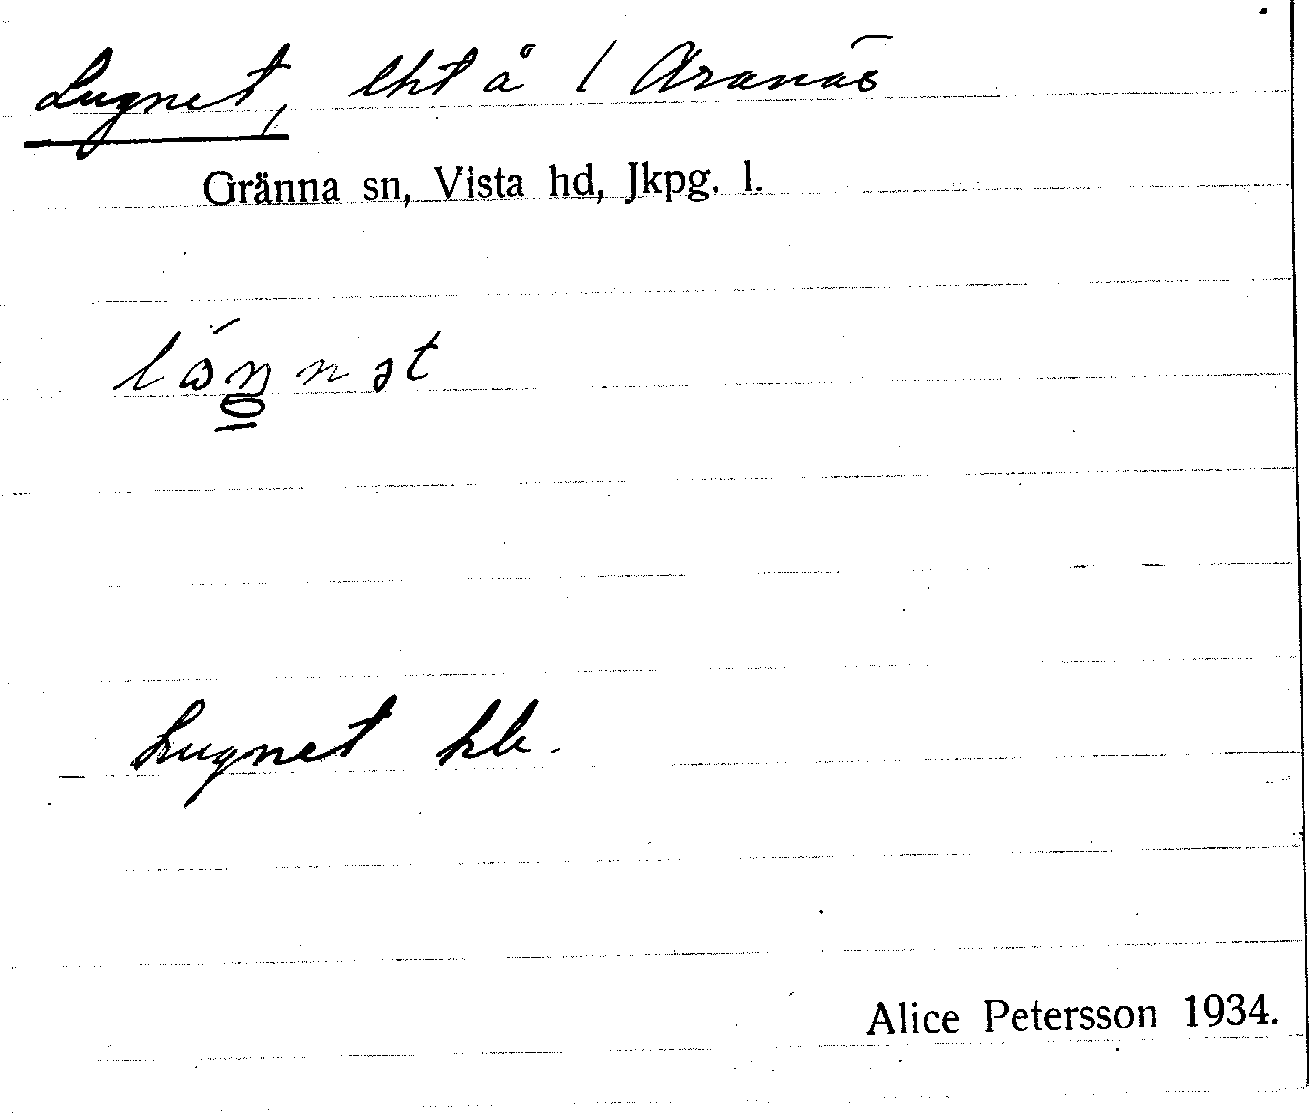 Lugnet, lht å / Aranäs
Gränna sn, Vista hd, Jkpg. l.
Lugnet hb.
Alice Petersson 1934.